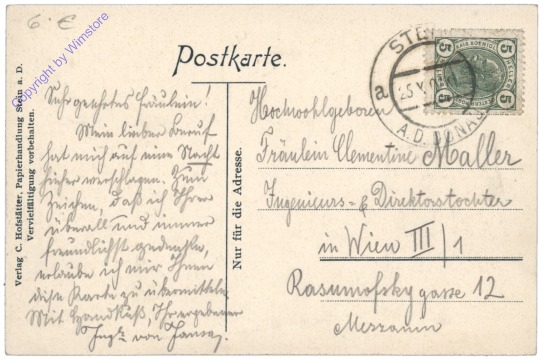 6.€
Copyright by Wimstore
Postkarte.
STEIN
A.D. DONAU
a
25 X
KAIS. KOENIGL.
5 5
HELLER
5 5
Verlag C. Hofstätter, Papierhandlung Stein a. D.
Vervielfältigung vorbehalten.
Nur für die Adresse.
Sehr geehrtes Fräulein!
Mein lieber Beruf
hat mich auf eine Nacht
hieher verschlagen. Zum
Zeichen, daß ich Ihrer
überall und immer
freundlichst gedenke,
erlaube ich mir Ihnen
diese Karte zu übermitteln.
Mit Handkuß, Ihr ergebener
von
Hochwohlgeboren
Fräulein Clementine Maller
Ingenieurs- & Direktorstochter
in Wien III/1
Rasumofskygasse 12
Mezzanin